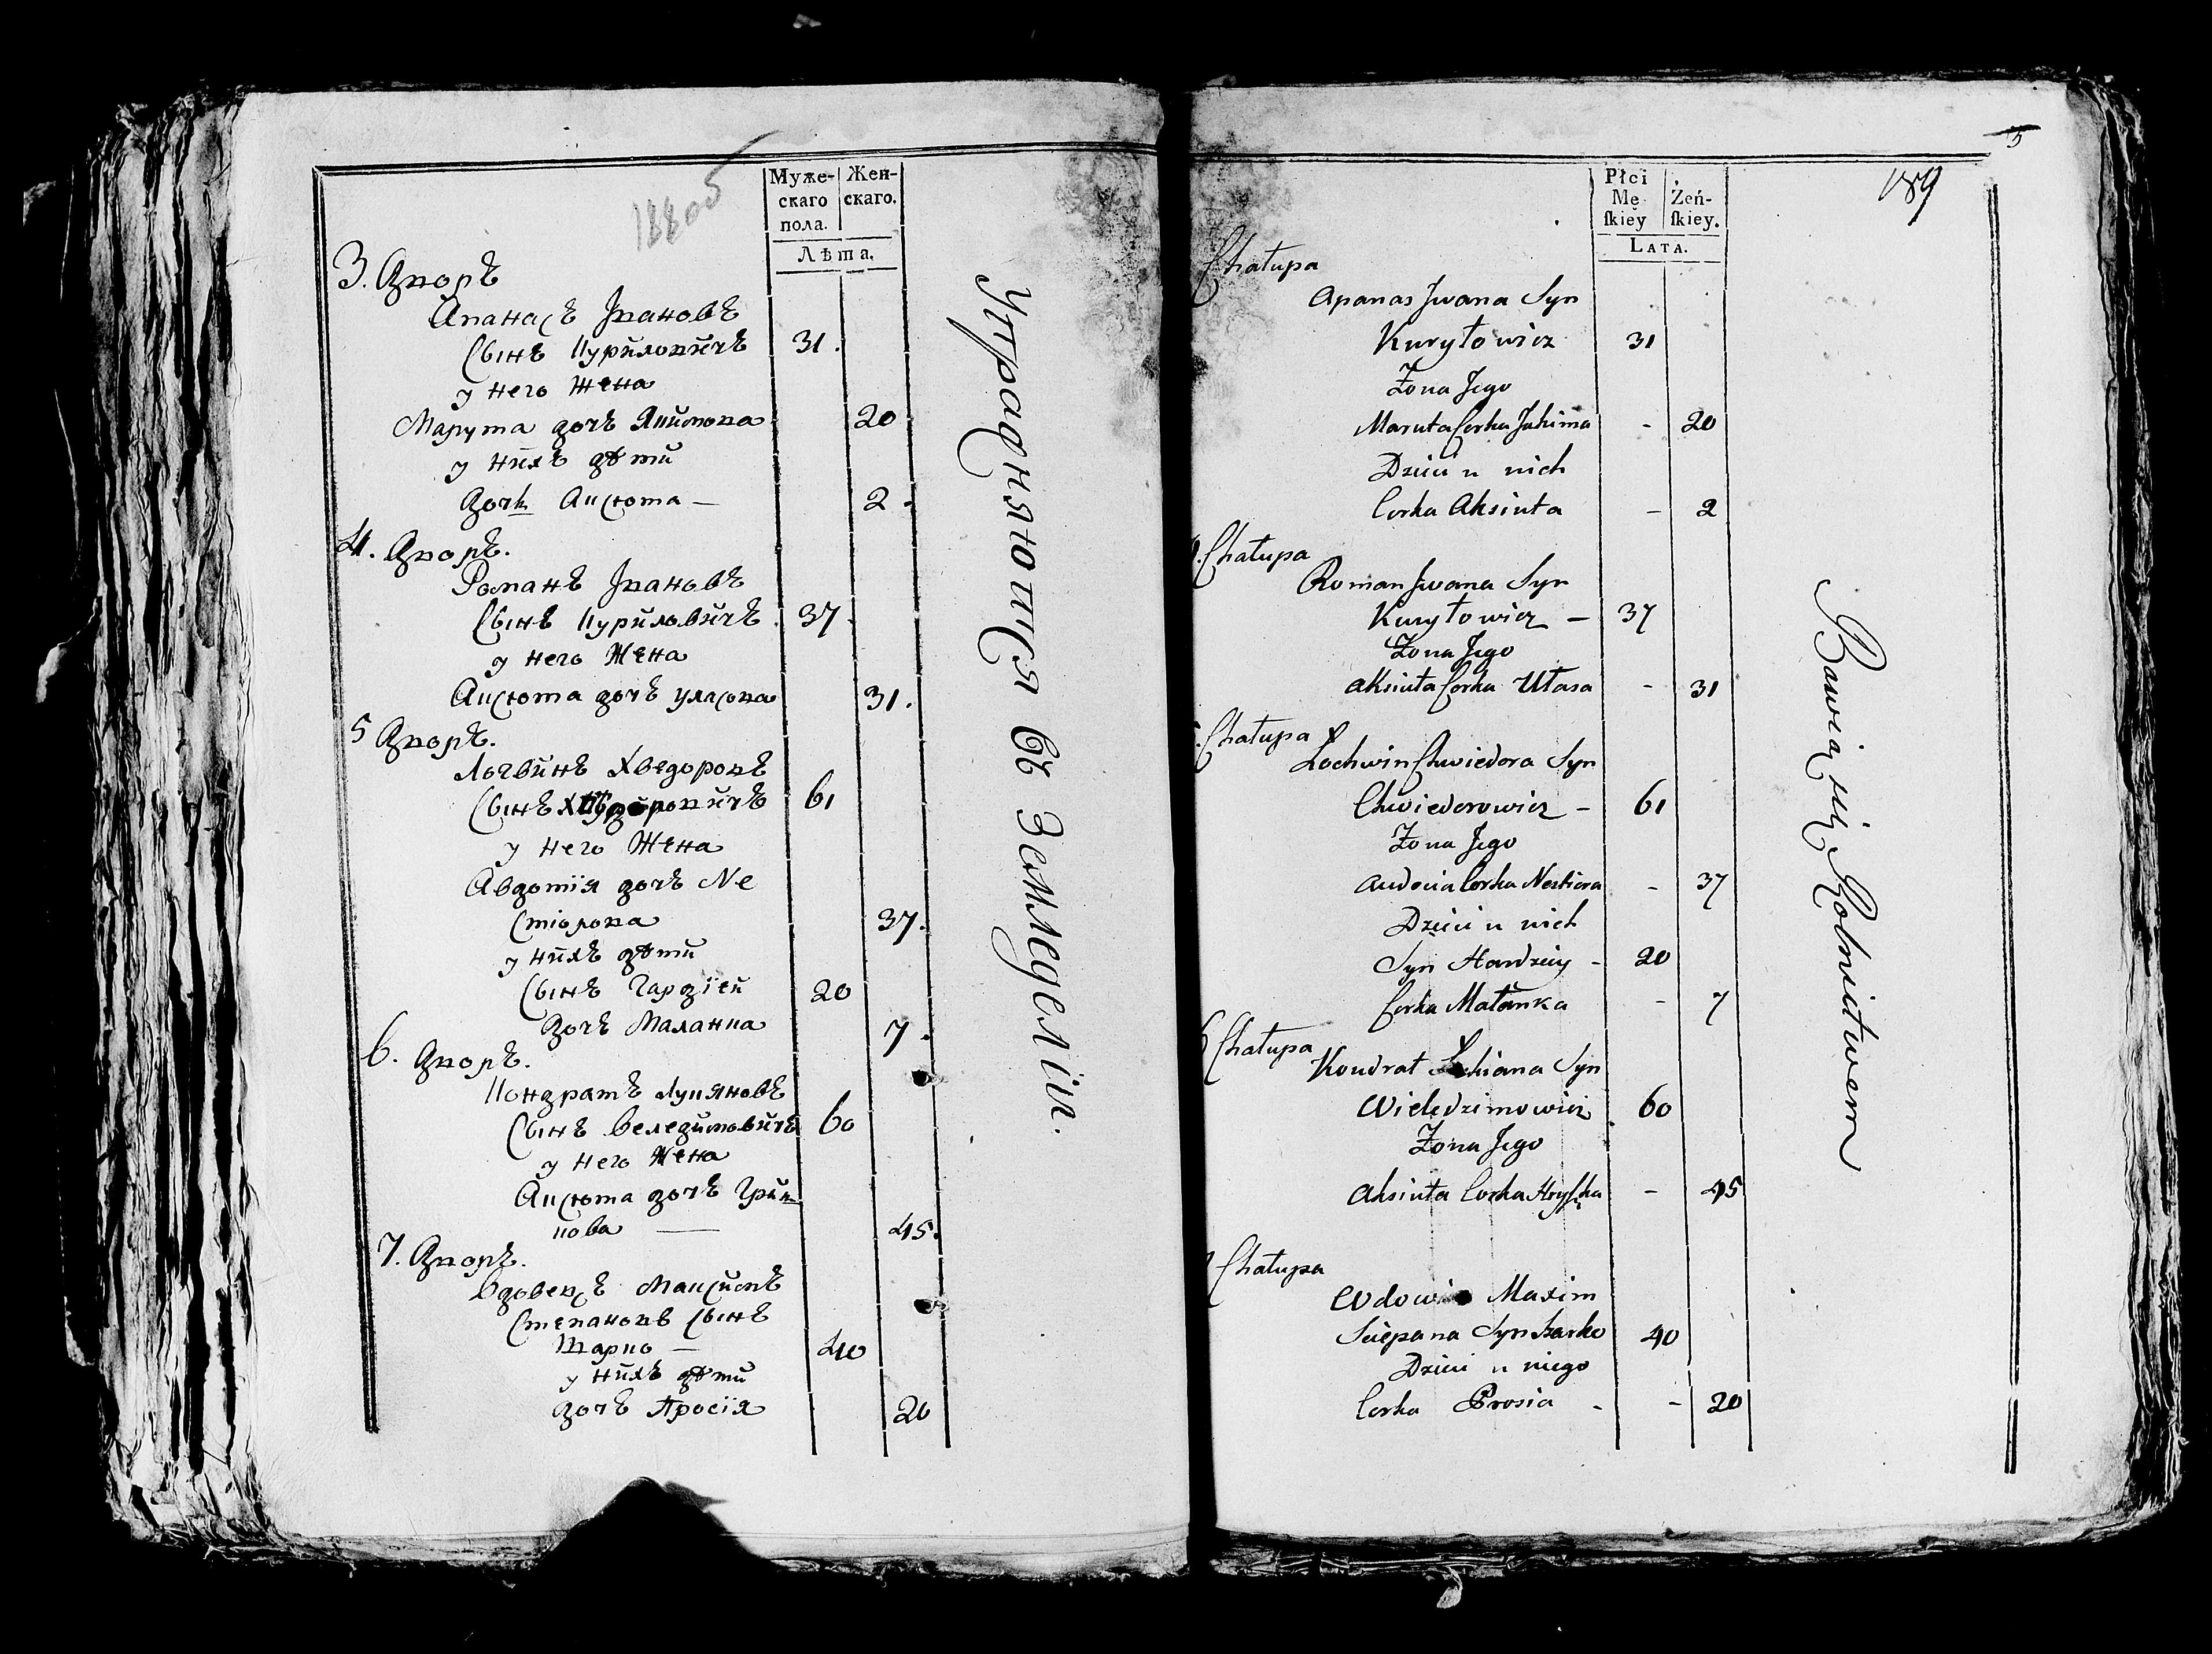 18805
Муже-
скаго
пола.
Жен-
скаго.
Лѣта.
3. Дворъ
Апанасъ Івановъ
Сынъ Куриловичъ 31.
у него жена
Марута дочъ Якимова 20
у нихъ дѣти
Дочь Аксюта — 2.
4. Дворъ.
Романъ Івановъ
Сынъ Куриловичъ. 37.
у него Жена
Аксюта дочъ Уласова 31.
5 Дворъ.
Логвинъ Хведоровъ
Сынъ 61
у него Жена
Авдотія дочъ Не
стіорова 37.
у нихъ дѣти
Сынъ Гардзіей 20
Дочъ Маланка 7.
6. Дворъ.
Кондратъ Лукяновъ
Сынъ Веледимовичъ 60
у него Жена
Аксюта дочъ Гриш
кова — 45.
7. Дворъ.
Вдовецъ Максимъ
Степановъ Сынъ
Шарко — 40
у нихъ дѣти
дочъ Просія 20
Упрадняются въ Земледеліи.
5
189
Płci
Mę
ſkiey
Żeń-
ſkiey.
LATA.
Chałupa
Apanas Jwana Syn
Kuryłowicz 31
Żona Jego
Maruta Corka Jakima - 20
Dzieci u nich
Corka Aksiuta - 2
Chałupa
Roman Jwana Syn
Kuryłowicz - 37
Żona Jego
Aksiuta Corka Ułasa - 31
Chałupa
Łochwin Chwiedora Syn
Chwiedorowicz - 61
Żona Jego
Audocia Corka Nestiora - 37
Dzieci u nich
Syn Hardziey - 20
Corka Małanka - 7
6 Chałupa
Kondrat Syn
Wieledzimowicz 60
Żona Jego
Aksiuta Corka Hryſzka - 45
Chałupa
Maxim
Sciepana Syn Szarko 40
Dzieci u niego
Corka Prosia - - 20
Bawią się Rolnictwem